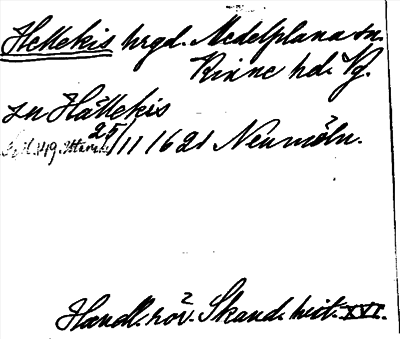 Hellekis hrgd. Medelplana sn.
Kinne hd. Vg.
zu Hällekis
25/11 1621 Neumöln.
Handl. rör. Skand. hist. XVI.